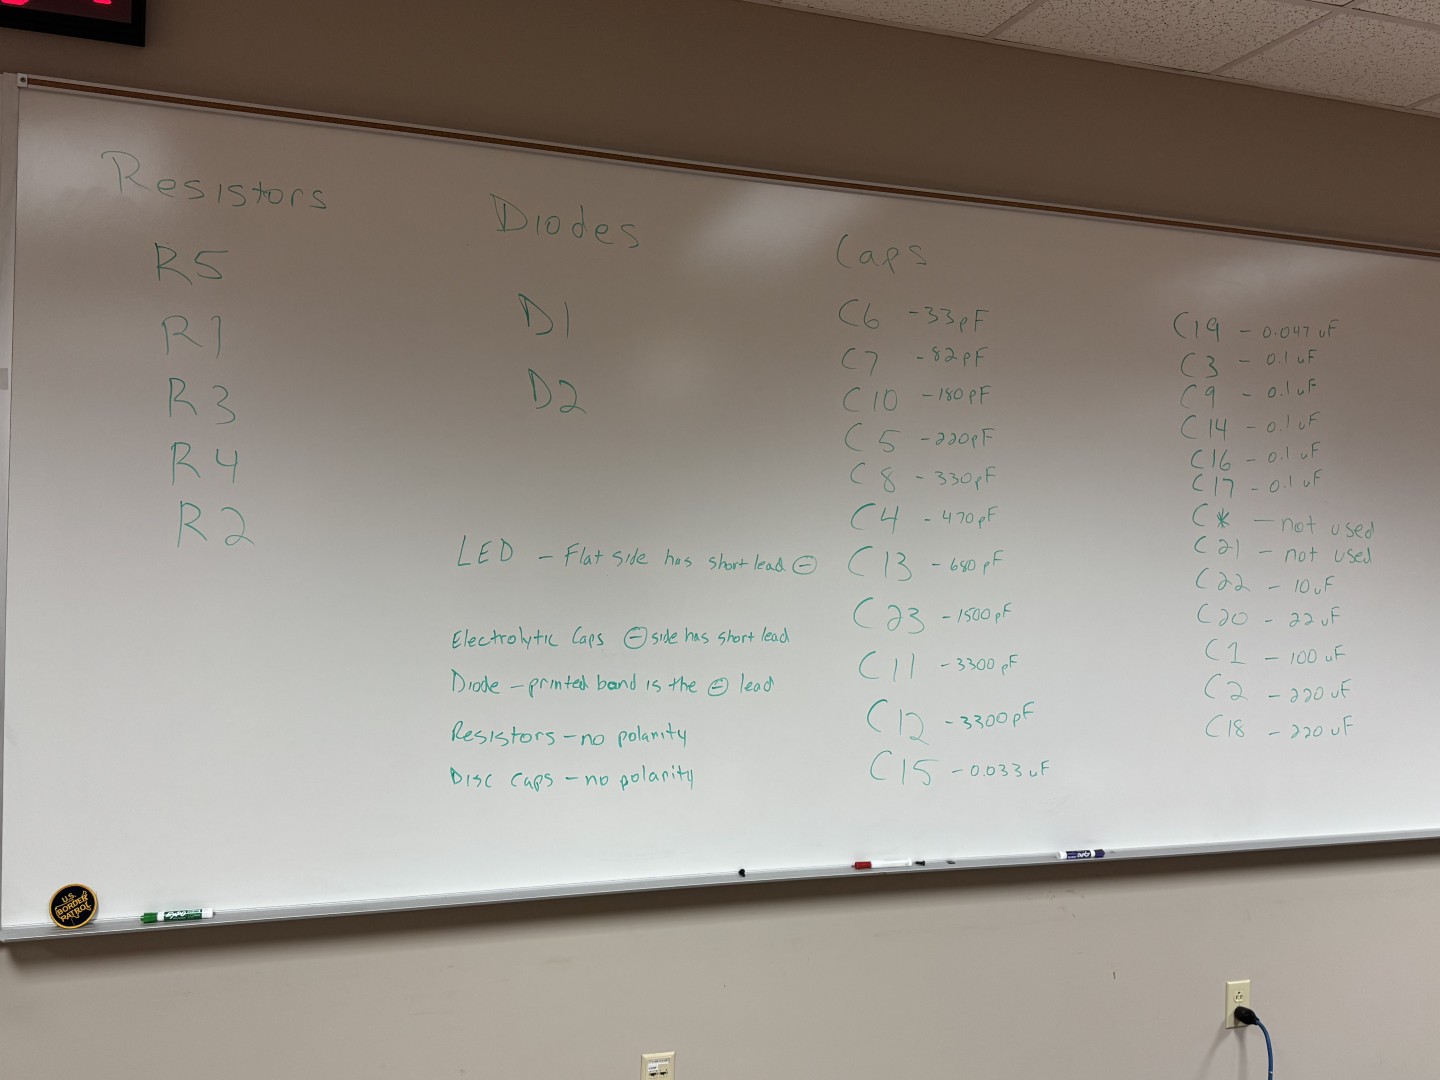 Resistors
R5
R1
R3
R4
R2
Diodes
D1
D2
LED - Flat side has short lead ⊖
Electrolytic Caps ⊖ side has short lead
Diode - printed band is the ⊖ lead
Resistors - no polarity
Disc Caps - no polarity
Caps
C6 - 33pF
C7 - 82pF
C10 - 180pF
C5 - 220pF
C8 - 330pF
C4 - 470pF
C13 - 680pF
C23 - 1500pF
C11 - 3300pF
C12 - 3300pF
C15 - 0.033uF
C19 - 0.047uF
C3 - 0.1uF
C9 - 0.1uF
C14 - 0.1uF
C16 - 0.1uF
C17 - 0.1uF
C* - not used
C21 - not used
C22 - 10uF
C20 - 22uF
C1 - 100uF
C2 - 220uF
C18 - 220uF
U.S.
BORDER
PATROL
EXPO